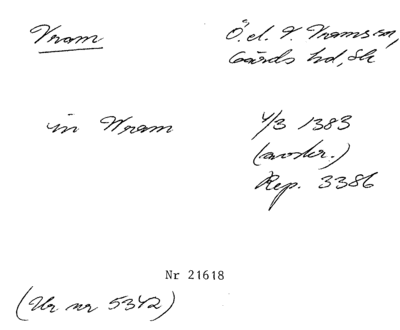 Vram Ö. el. V. Vrams sn,
Gärds hd, Sk
in Wram 4/3 1383
(avskr.)
Rep. 3386
Nr 21618
(Ur nr 5342)